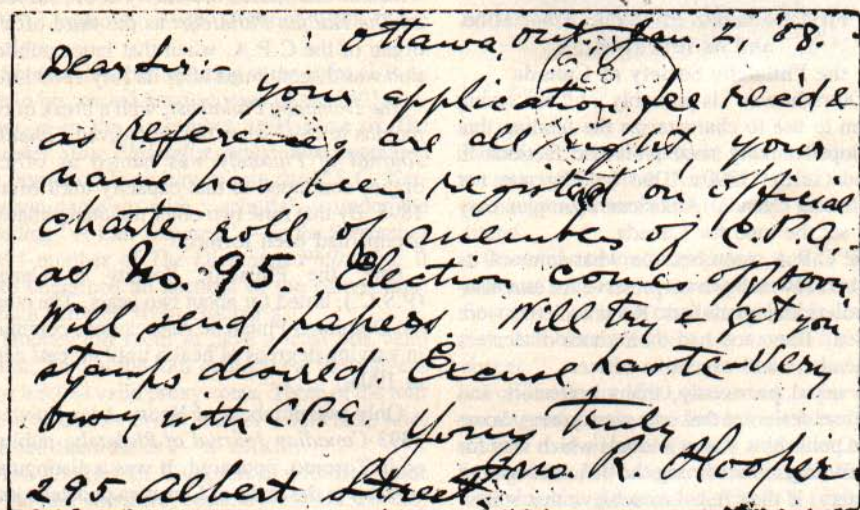 Ottawa, Ont. Jan 2 '88.
Dear Sir -
your application fee recd &
as references are all right your
name has been registed on official
charter roll of members of C.P.A.
as No. 95. Elections comes off soon,
Will send papers. Will try & get you
stamps desired. Excuse haste Very
busy with C.P.A. Yours truly
Jno. R. Hooper
295 Albert Street